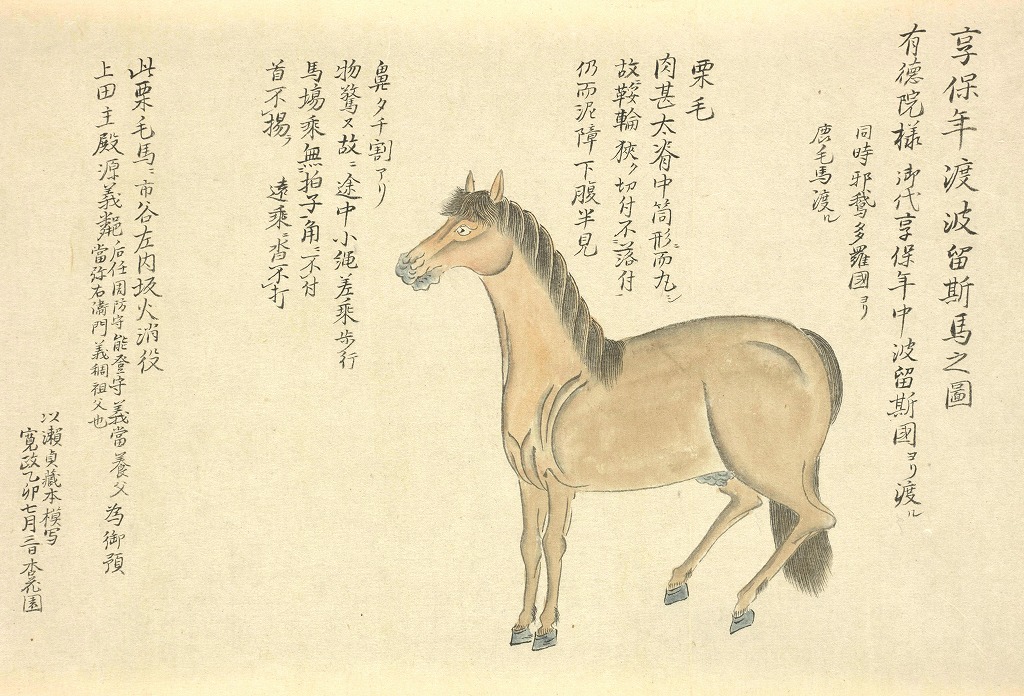 享保年渡波留斯馬之圖
有德院様御代享保年中波留斯國ヨリ渡ル
同時邪鵞多羅國ヨリ
鹿毛馬渡ル
栗毛
肉甚太脊中筒形ニ而丸シ
故鞍輪狹ク切付不落付
仍而泥障下腹半見
鼻タチ割アリ
物驚又故ニ途中小縄差乘歩行
馬場乘無拍子角ニ不付
首不揚ラ 遠乘ニ沓不打
此栗毛馬ニ市谷左内坂火消役
上田主殿源義
后任周防守能登守義當養父為御預
當弥右衛門義稠祖父也
以瀬貞藏本模写
寛政乙卯七月三日本花園